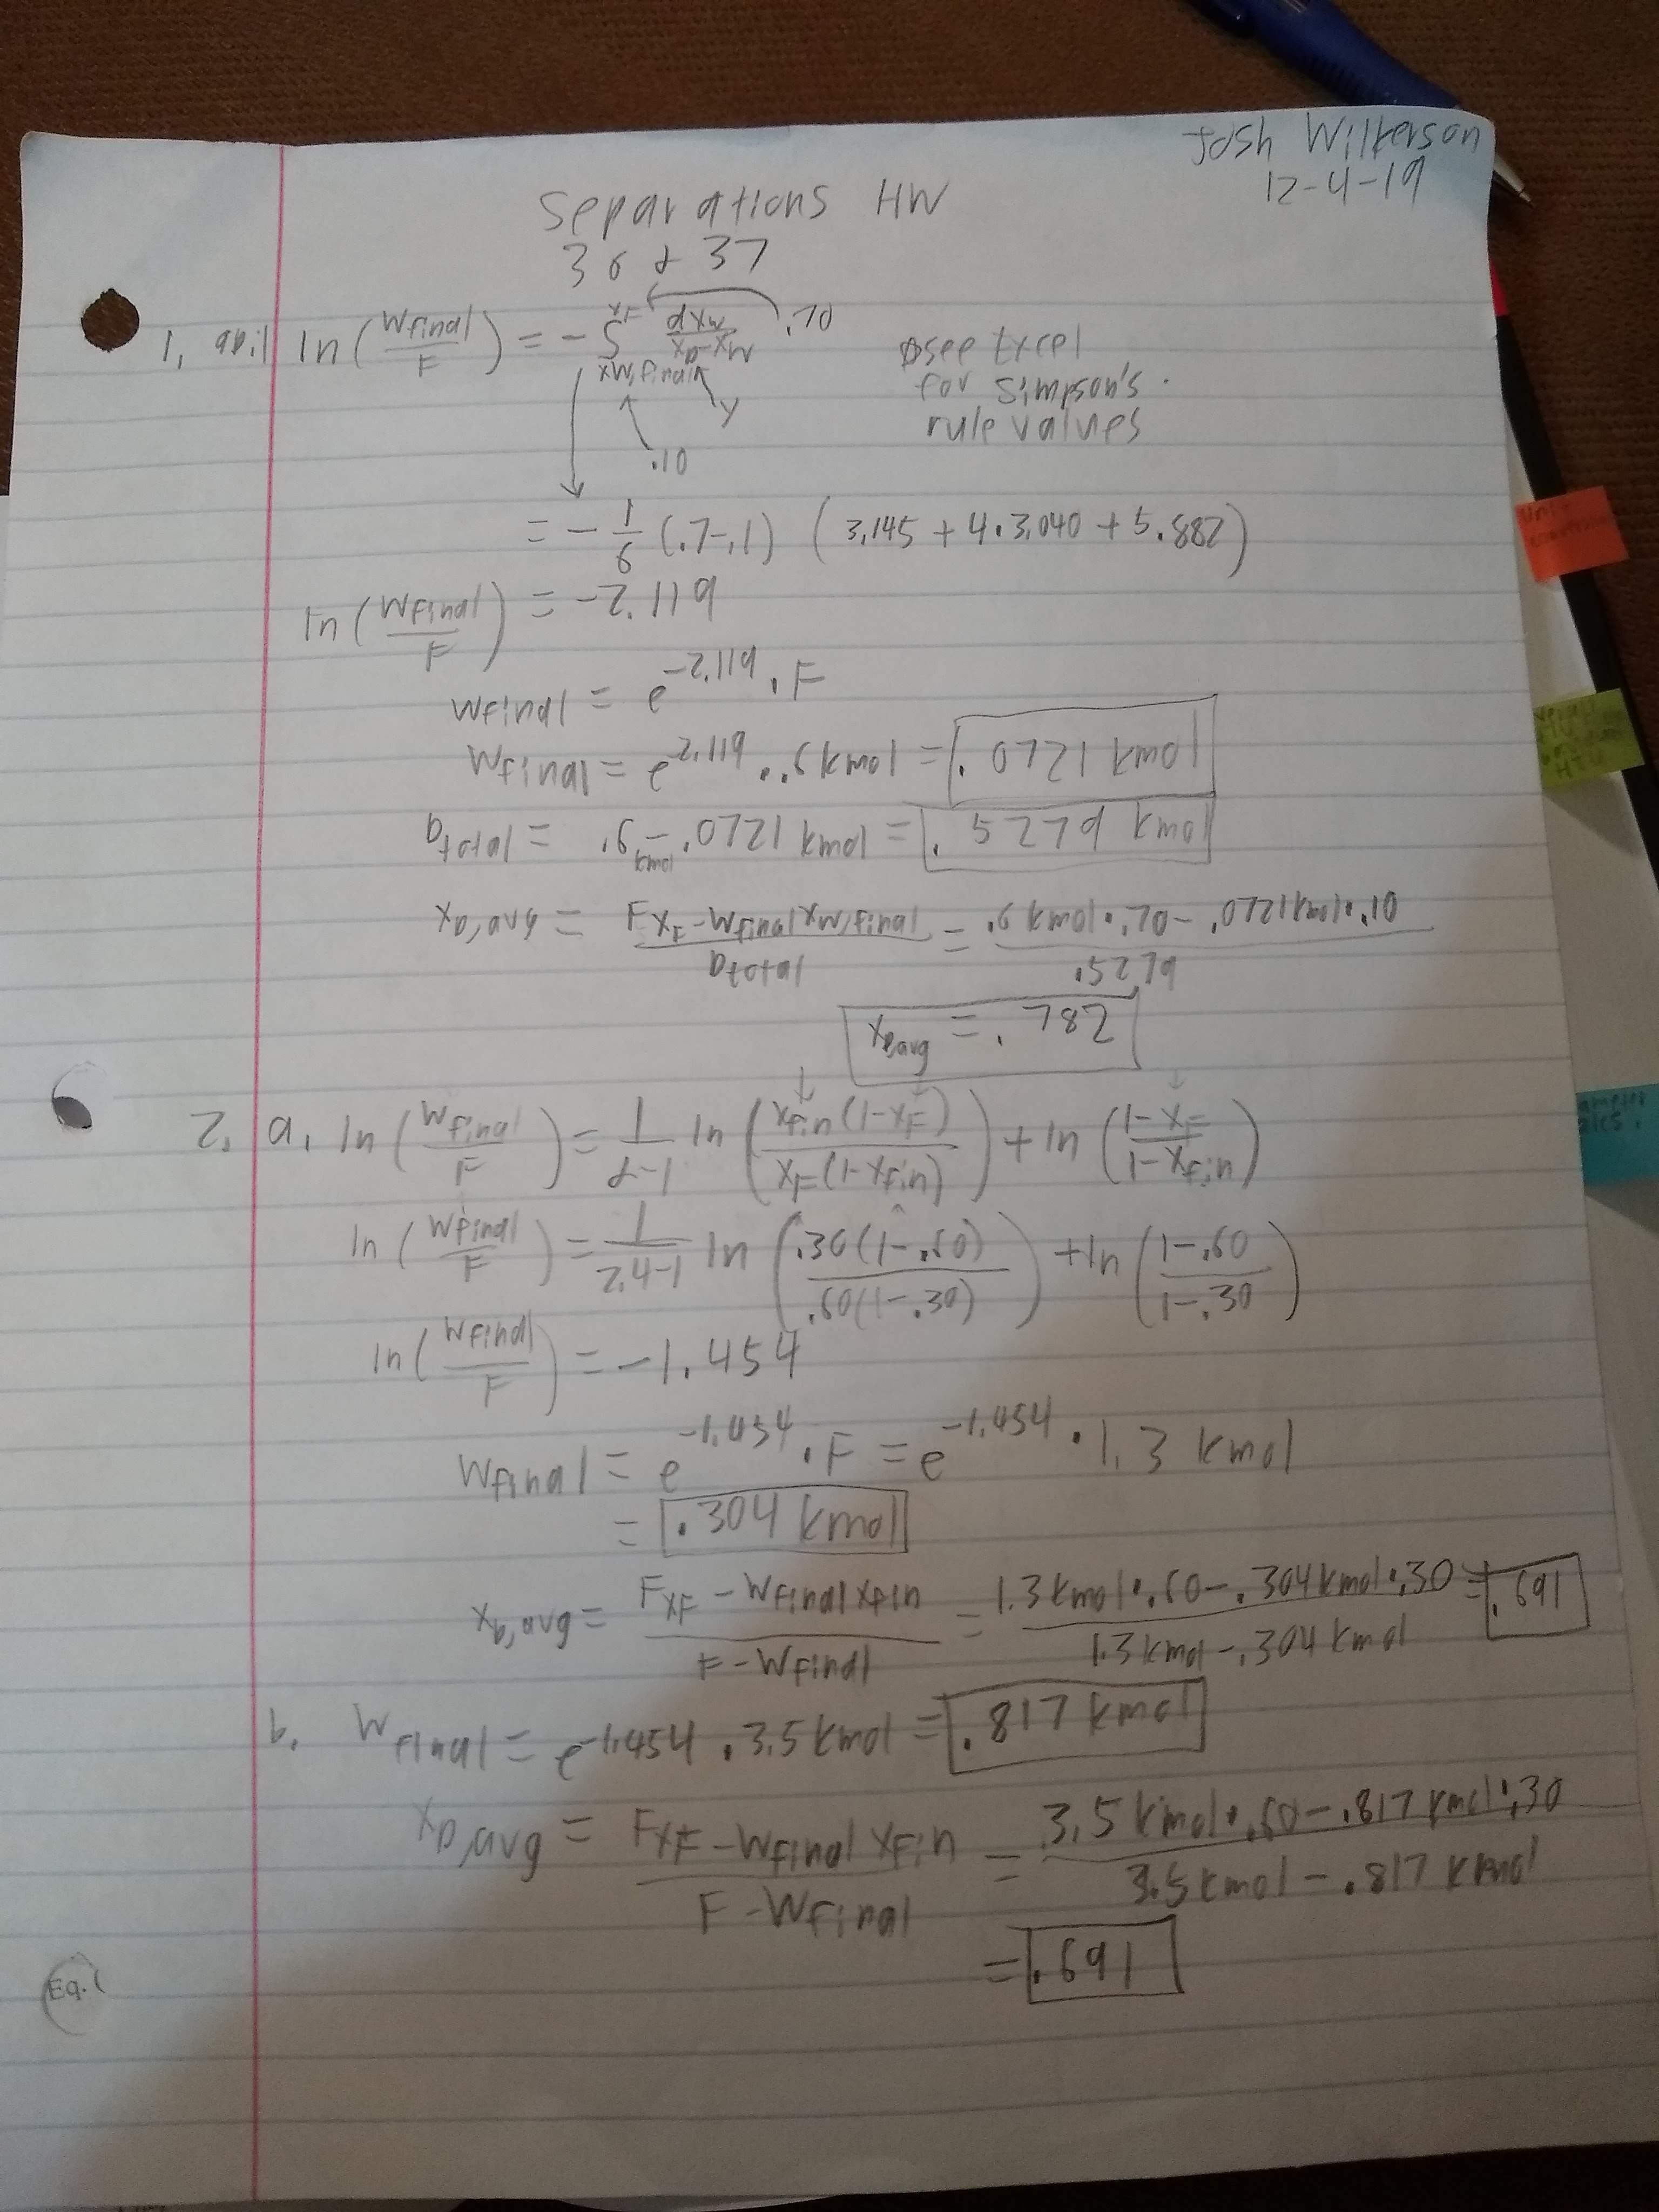 Josh Wilkerson
12-4-19
Separations HW
36 & 37
1. ln(Wfinal/F) = -∫ xF xW,final dxw/xD-xw .70
y
.10
see Excel
for Simpson's
rule values
= -1/6 (.7-.1) (3.145 + 4·3.040 + 5.882)
ln(Wfinal/F) = -2.119
Wfinal = e^-2.119 · F
Wfinal = e^-2.119 · .6 kmol = .0721 kmol
Dtotal = .6 kmol - .0721 kmol = .5279 kmol
xD,avg = FxF - Wfinal xW,final / Dtotal = .6 kmol · .70 - .0721 kmol · .10 / .5279
xD,avg = .782
2. a. ln(Wfinal/F) = 1/α-1 ln(xfin(1-xF)/xF(1-xfin)) + ln(1-xF/1-xfin)
ln(Wfinal/F) = 1/2.4-1 ln(.30(1-.60)/.60(1-.30)) + ln(1-.60/1-.30)
ln(Wfinal/F) = -1.454
Wfinal = e^-1.454 · F = e^-1.454 · 1.3 kmol
= .304 kmol
xD,avg = FxF - Wfinal xfin / F - Wfinal = 1.3 kmol · .60 - .304 kmol · .30 / 1.3 kmol - .304 kmol = .691
b. Wfinal = e^-1.454 · 3.5 kmol = .817 kmol
xD,avg = FxF - Wfinal xfin / F - Wfinal = 3.5 kmol · .60 - .817 kmol · .30 / 3.5 kmol - .817 kmol
= .691
Eq. (